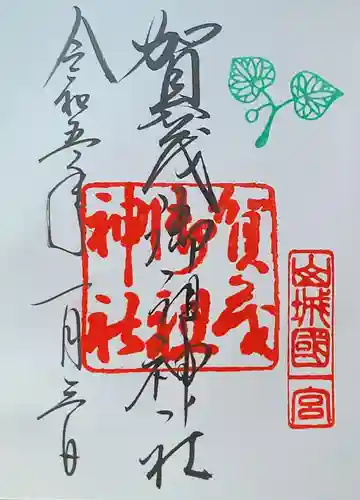 賀茂御祖神社
令和五年一月三日
賀茂
御祖
神社
山城國一宮